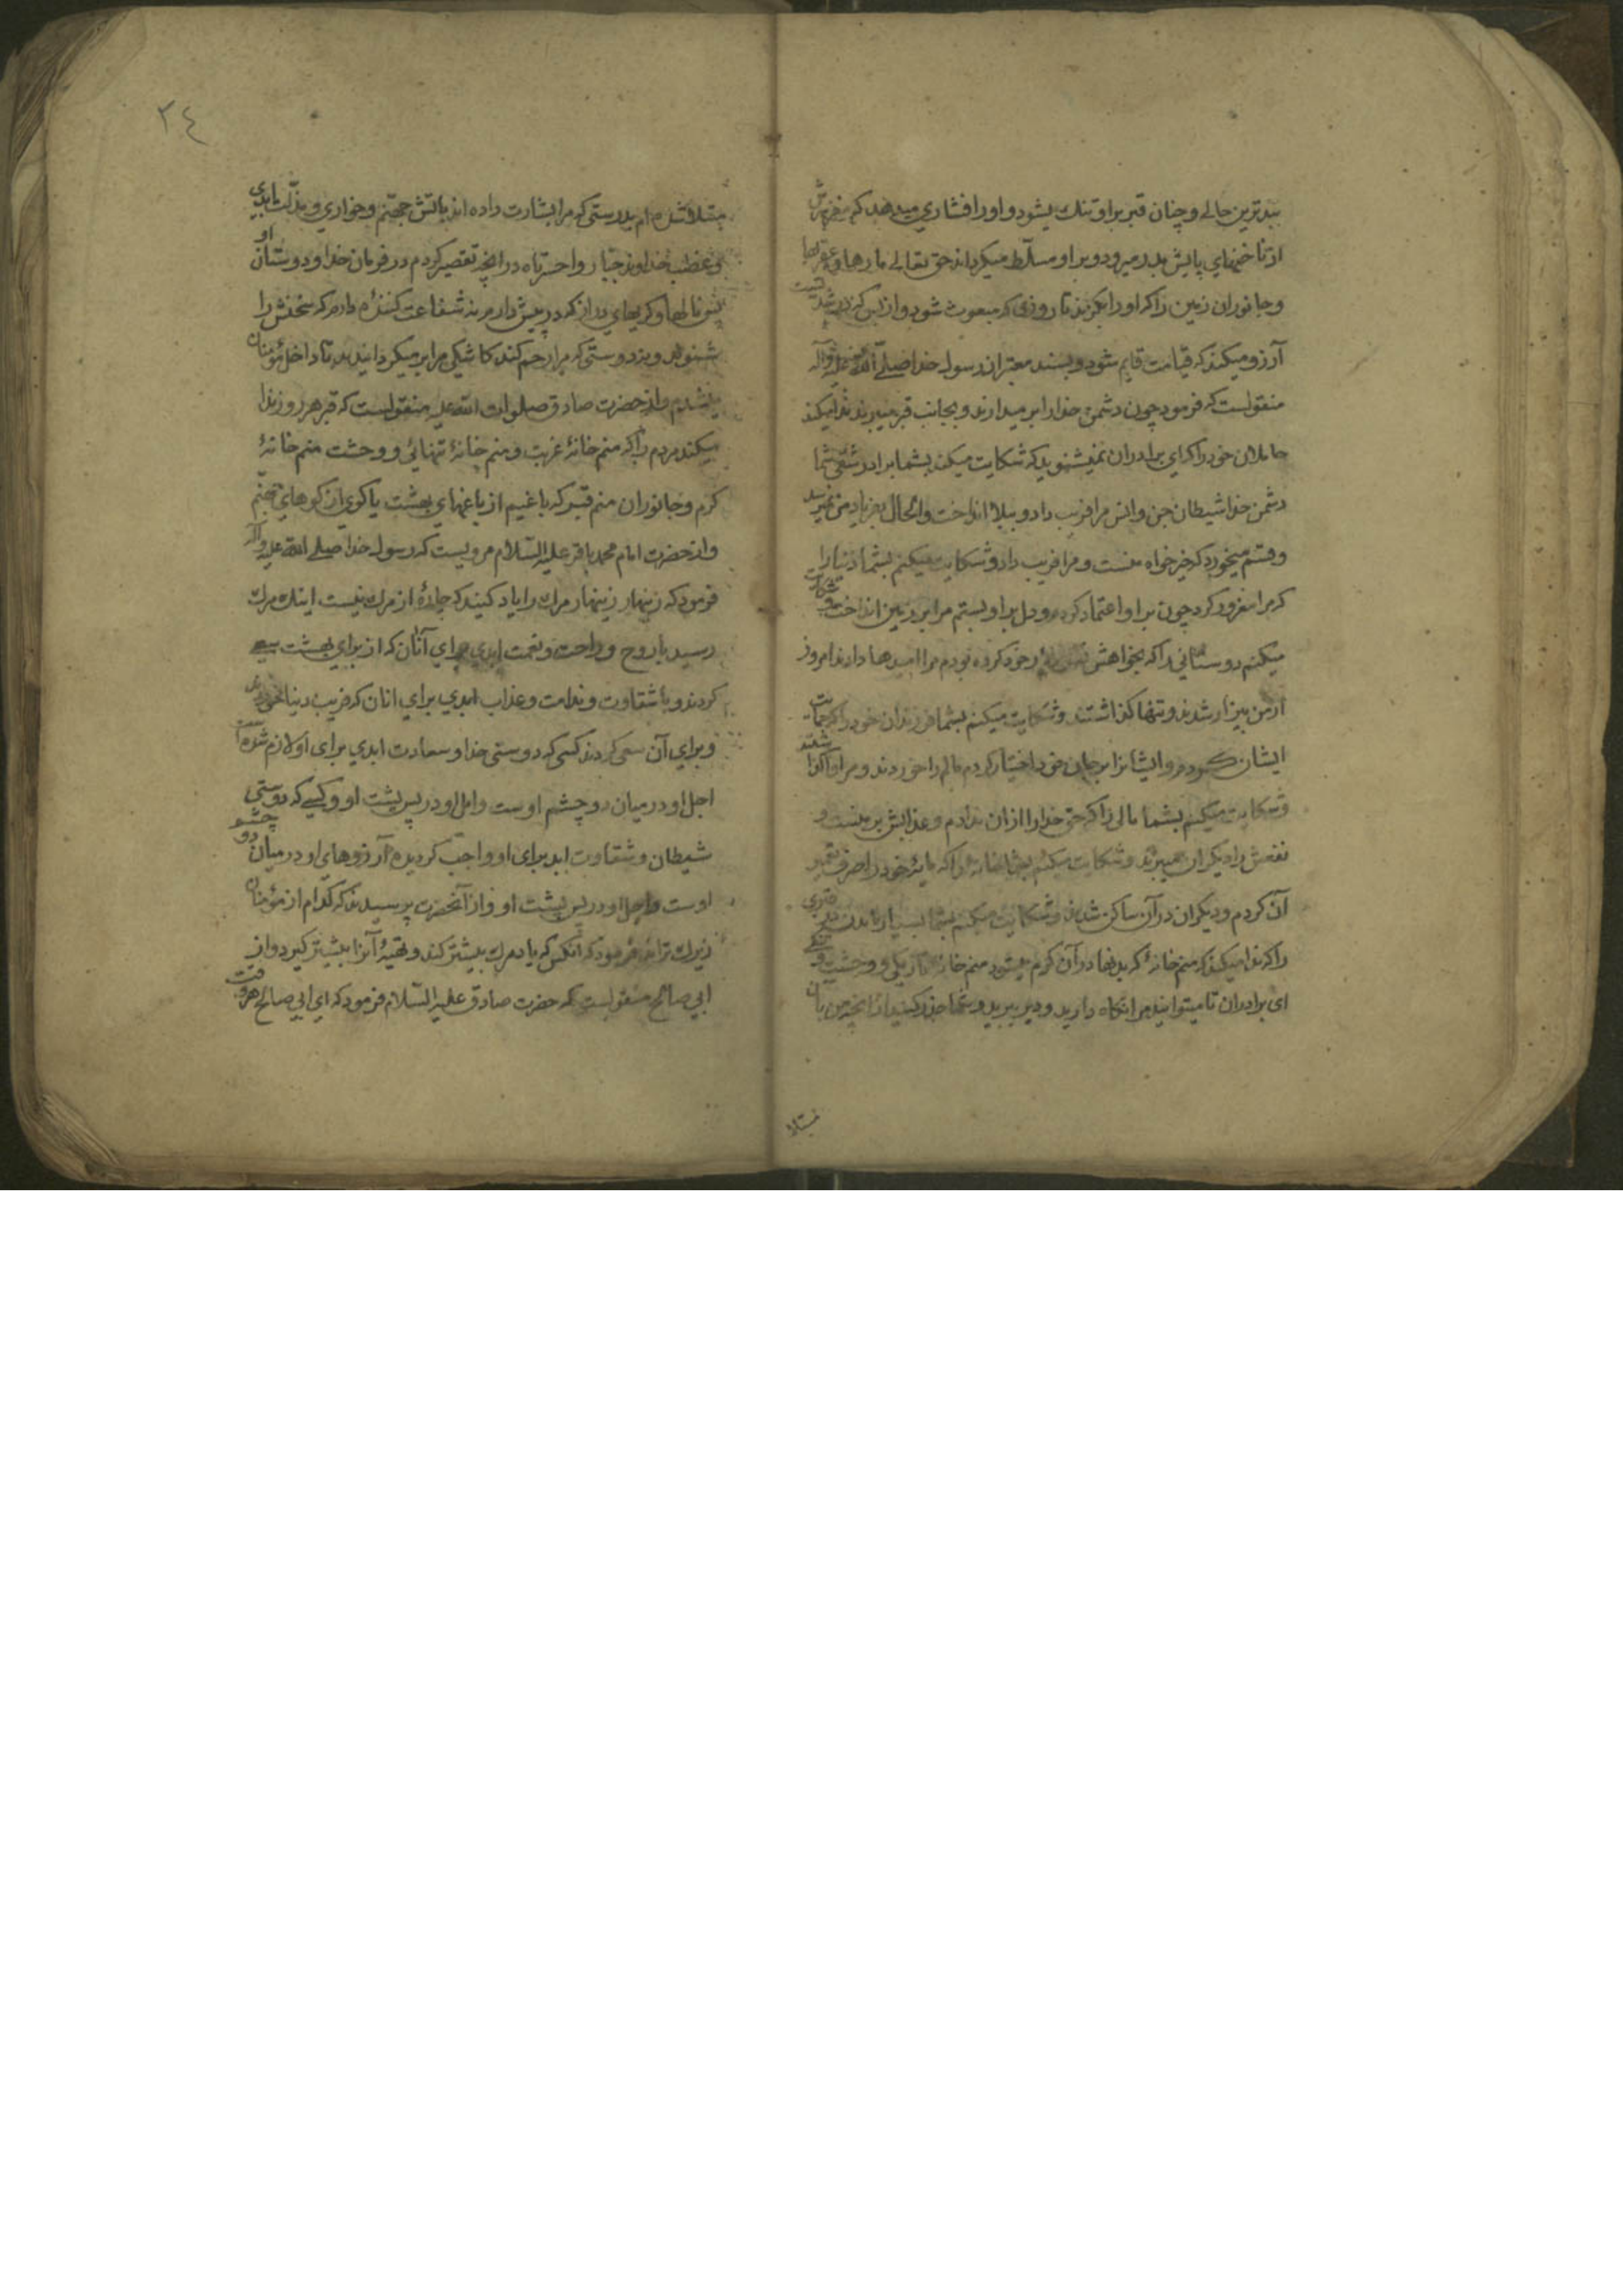 ببدترین حالے و چنان قبر بر او تنك میشود و او را فشاری میدهد که مغز سرش
از ناخنهای پایش بدر میرود و بر او مسلّط میگرداند حق تعالے مارها و عقربها
و جانوران زمین را که او را بگزند تا روزی که مبعوث شود و از بس که در شدتست
آرزو میکند که قیامت قایم شود و بسند معتبر از رسول خدا صلّے الله علیه و آله
منقولست که فرمود چون دشمن خدا را بر میدارند و بجانب قبر میبرند ندا میکند
حاملان خود را که ای برادران نمیشنوید که شکایت میکند بشما برادر شقی شما
دشمن خدا شیطان جن و انس مرا فریب داد و ببلا انداخت و الحال بفریاد من نمیرسد
و قسم میخورد که خیرخواه منست و مرا فریب داد و شکایت میکنم بشما دنیا را
که مرا مغرور کرد چون بر او اعتماد کردم و دل بر او بستم مرا بر زمین انداخت و شکایت
میکنم دوستانی را که بخواهش نفس خود کرده بودم مرا امیدها دادند امروز
از من بیزار شدند و تنها گذاشتند و شکایت میکنم بشما فرزندان خود را که حمایت
ایشان کردم و ایشانرا بر جان خود اختیار کردم مالم را خوردند و مرا واگذاشتند
و شکایت میکنم بشما مالی را که حق خدا را از آن ندادم و عذابش بر منست و
نفعش را دیگران میبرند و شکایت میکنم بشما خانه را که مایهٔ خود را صرف تعمیر
آن کردم و دیگران در آن ساکن شدند و شکایت میکنم بشما بسیار ماندن در قبری
را که ندا میکند که منم خانهٔ که بدنها در آن کرم میشود منم خانهٔ تاریکی و وحشت و تنگی
ای برادران تا میتوانید مرا نگاه دارید و دیر ببرید و شما حذر کنید از آنچه من بآن
مبتلا
٢٤
مبتلا شده‌ام بدرستی که مرا بشارت داده‌اند بآتش جهنّم و خواری و مذلّت ابدی
و غضب خداوند جبّار واحسرتاه در آنچه تقصیر کردم در فرمان خدا و دوستان او
پس نالها و گریهای دراز که در پیش دارم نه شفاعت کنندهٔ دارم که سخنش را
شنوند و نه دوستی که مرا رحم کند کاشکی مرا بر میگردانیدند تا داخل مؤمنان
باشم و از حضرت صادق صلوات الله علیه منقولست که قبر هر روز ندا
میکند مردم را که منم خانهٔ غربت و منم خانهٔ تنهائی و وحشت منم خانهٔ
کرم و جانوران منم قبر که باغیم از باغهای بهشت یا کوی از کوهای جهنّم
و از حضرت امام محمد باقر علیه السّلام مرویست که رسول خدا صلے الله علیه و آله
فرمود که زینهار زینهار مرك را یاد کنید که چارهٔ از مرك نیست اینك مرك
رسید با روح و راحت و نعمت ابدی برای آنان که از برای بهشت سعی
کردند و با شقاوت و ندامت و عذاب ابدی برای آنان که فریب دنیا خوردند
و برای آن سعی کردند کسی که دوستی خدا و سعادت ابدی برای او لازم شده است
اجل او در میان دو چشم اوست و امل او در پس پشت او و کسے که دوستی
شیطان و شقاوت ابد برای او واجب گردیده آرزوهای او در میان دو چشم
اوست و اجل او در پس پشت او و از آنحضرت پرسیدند که کدام از مؤمنان
زیرك ترند فرمود که آنکس که یاد مرك بیشتر کند و تهیّهٔ آنرا بیشتر گیرد و از
ابی صالح منقولست که حضرت صادق علیه السّلام فرمود که ای ابی صالح هر وقت